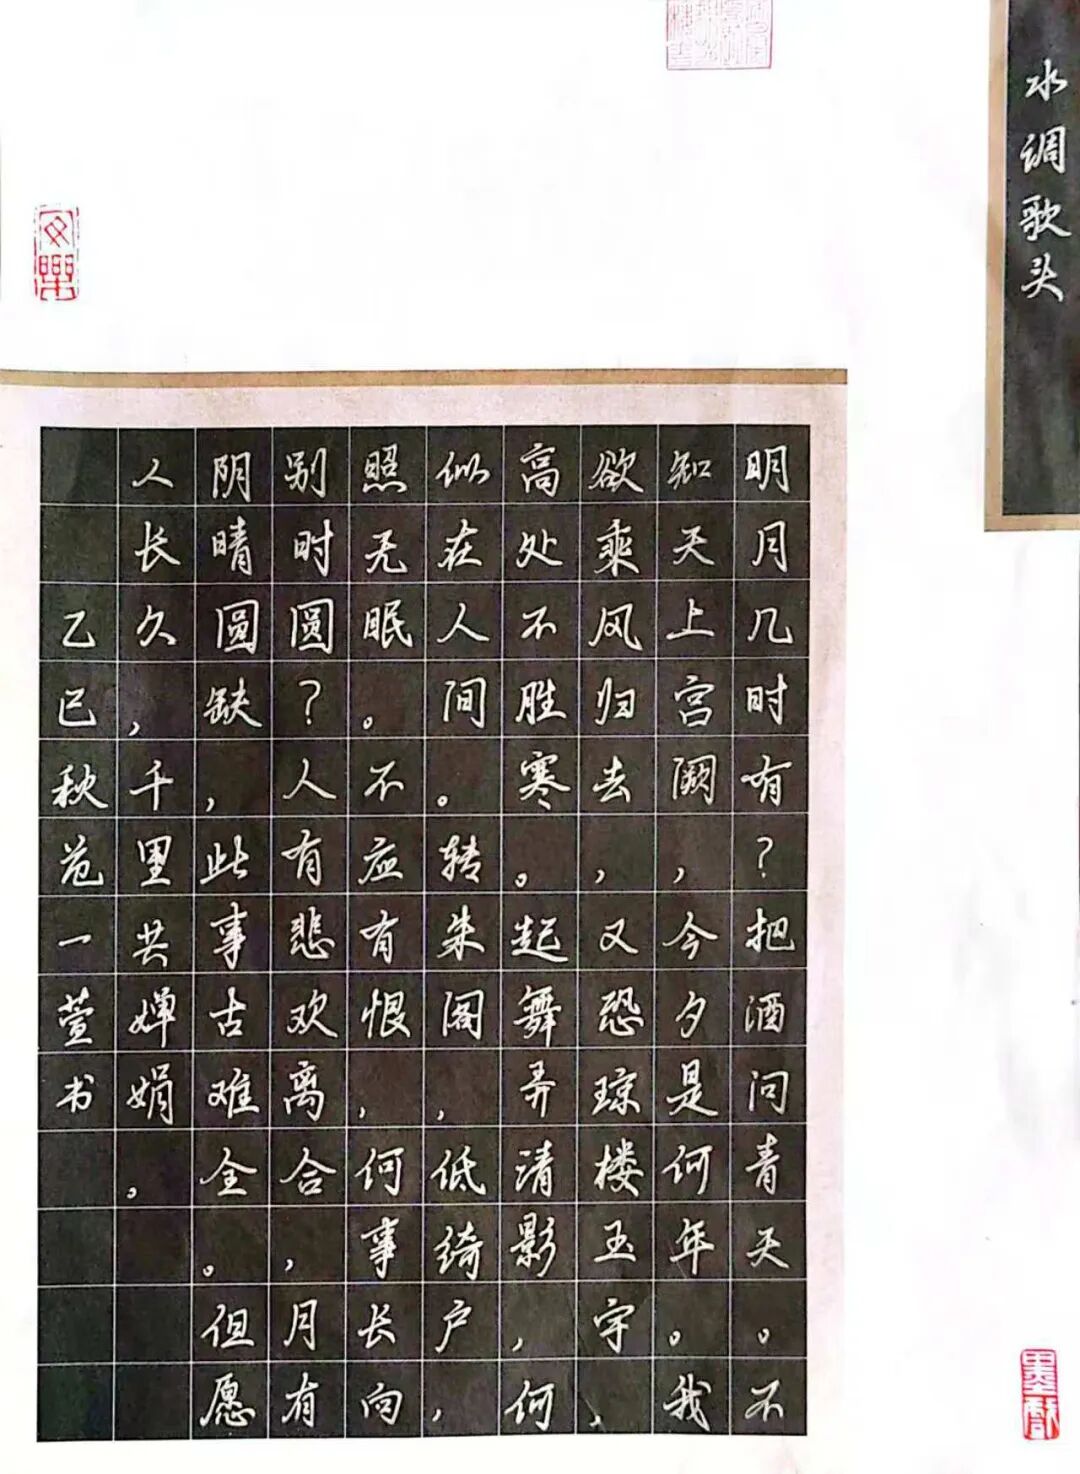 水调歌头
明月几时有？把酒问青天。不
知天上宫阙，今夕是何年。我
欲乘风归去，又恐琼楼玉宇，
高处不胜寒。起舞弄清影，何
似在人间。转朱阁，低绮户，
照无眠。不应有恨，何事长向
别时圆？人有悲欢离合，月有
阴晴圆缺，此事古难全。但愿
人长久，千里共婵娟。
乙巳秋一萱书
墨戲